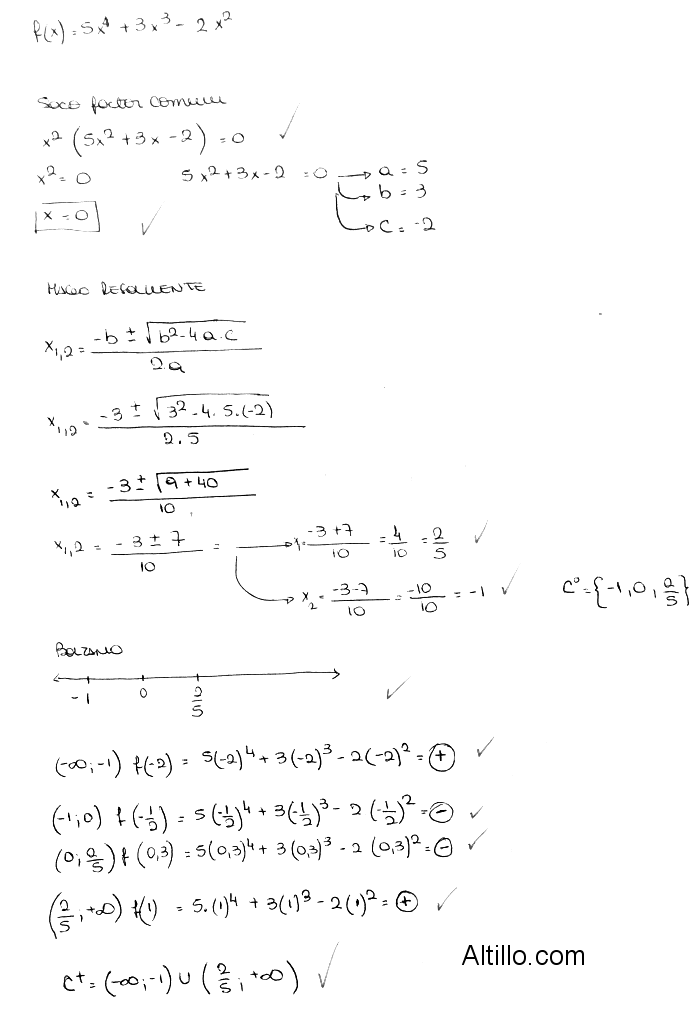 f(x) = 5x⁴ + 3x³ - 2x²
Saco factor comun
x² (5x² + 3x - 2) = 0
x² = 0 5x² + 3x - 2 = 0 → a = 5
→ b = 3
x = 0
→ c = -2
HAGO RESOLVENTE
x₁,₂ = (-b ± √(b² - 4a.c)) / 2.a
x₁,₂ = (-3 ± √(3² - 4.5.(-2))) / 2.5
x₁,₂ = (-3 ± √(9 + 40)) / 10
x₁,₂ = (-3 ± 7) / 10 = → x₁ = (-3+7)/10 = 4/10 = 2/5
→ x₂ = (-3-7)/10 = -10/10 = -1 C⁰ = {-1, 0, 2/5}
BOLZANO
-1 0 2/5
(-∞; -1) f(-2) = 5(-2)⁴ + 3(-2)³ - 2(-2)² = ⊕
(-1; 0) f(-1/2) = 5(-1/2)⁴ + 3(-1/2)³ - 2(-1/2)² = ⊖
(0; 2/5) f(0,3) = 5(0,3)⁴ + 3(0,3)³ - 2(0,3)² = ⊖
(2/5; +∞) f(1) = 5.(1)⁴ + 3(1)³ - 2(1)² = ⊕
Altillo.com
C⁺ = (-∞; -1) ∪ (2/5; +∞)